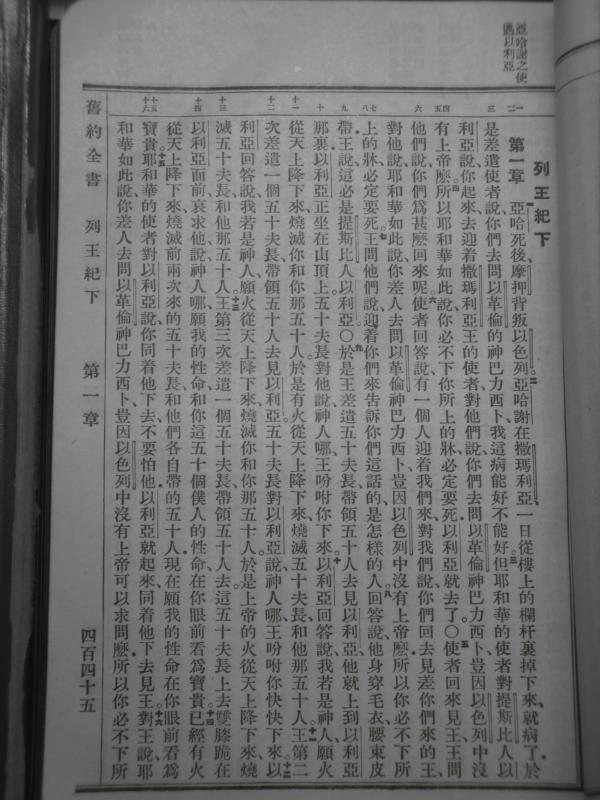 亞哈謝之使
遇以利亞
列王紀下
第一章 亞哈死後、摩押背叛以色列。二亞哈謝在撒瑪利亞、一日從樓上的欄杆裏掉下來、就病了、於
是差遣使者說、你們去問以革倫的神巴力西卜、我這病能好不能好、三但耶和華的使者、對提斯比人以
利亞說、你起來、去迎着撒瑪利亞王的使者、對他們說、你們去問以革倫神巴力西卜、豈因以色列中沒
有上帝麽、四所以耶和華如此說、你必不下你所上的牀、必定要死、以利亞就去了。○五使者回來見王、王問
他們說、你們爲甚麽回來呢、六使者回答說、有一個人迎着我們來、對我們說、你們回去見差你們來的王、
對他說、耶和華如此說、你差人去問以革倫神巴力西卜、豈因以色列中沒有上帝麽、所以你必不下所
上的牀、必定要死、七王問他們說、迎着你們來告訴你們這話的、是怎樣的人、八回答說、他身穿毛衣、腰束皮
帶、王說、這必是提斯比人以利亞。○九於是王差遣五十夫長、帶領五十人去見以利亞、他就上到以利亞
那裏、以利亞正坐在山頂上、五十夫長對他說、神人哪、王吩咐你下來、十以利亞回答說、我若是神人、願火
從天上降下來、燒滅你和你那五十人、於是有火從天上降下來、燒滅五十夫長、和他那五十人。十一王第二
次差遣一個五十夫長、帶領五十人去見以利亞、五十夫長對以利亞說、神人哪、王吩咐你快快下來、十二以
利亞回答說、我若是神人、願火從天上降下來、燒滅你和你那五十人、於是上帝的火從天上降下來、燒
滅五十夫長、和他那五十人。十三王第三次差遣一個五十夫長、帶領五十人去、這五十夫長上去、雙膝跪在
以利亞面前、哀求他說、神人哪、願我的性命、和你這五十個僕人的性命、在你眼前看爲寶貴、十四已經有火
從天上降下來、燒滅前兩次來的五十夫長、和他們各自帶的五十人、現在願我的性命在你眼前看爲
寶貴、十五耶和華的使者對以利亞說、你同着他下去、不要怕他、以利亞就起來、同着他下去見王、十六對王說、耶
和華如此說、你差人去問以革倫神巴力西卜、豈因以色列中沒有上帝可以求問麽、所以你必不下所
舊約全書 列王紀下 第一章 四百四十五